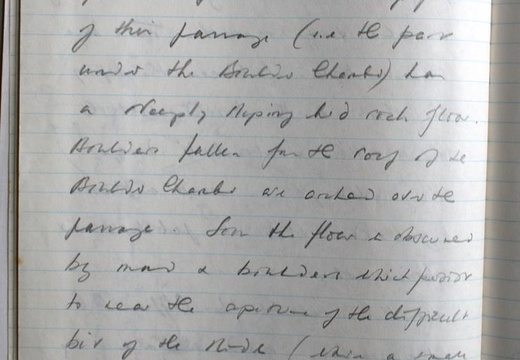 of this passage (i.e. the part
under the Boulder Chamber) has
a steeply sloping bed rock floor.
Boulders fallen from the roof of the
Boulder Chamber are arched over the
passage. Soon the floor is obscured
by mud & boulders which persist
to near the aperture of the difficult
bit of the (this a small